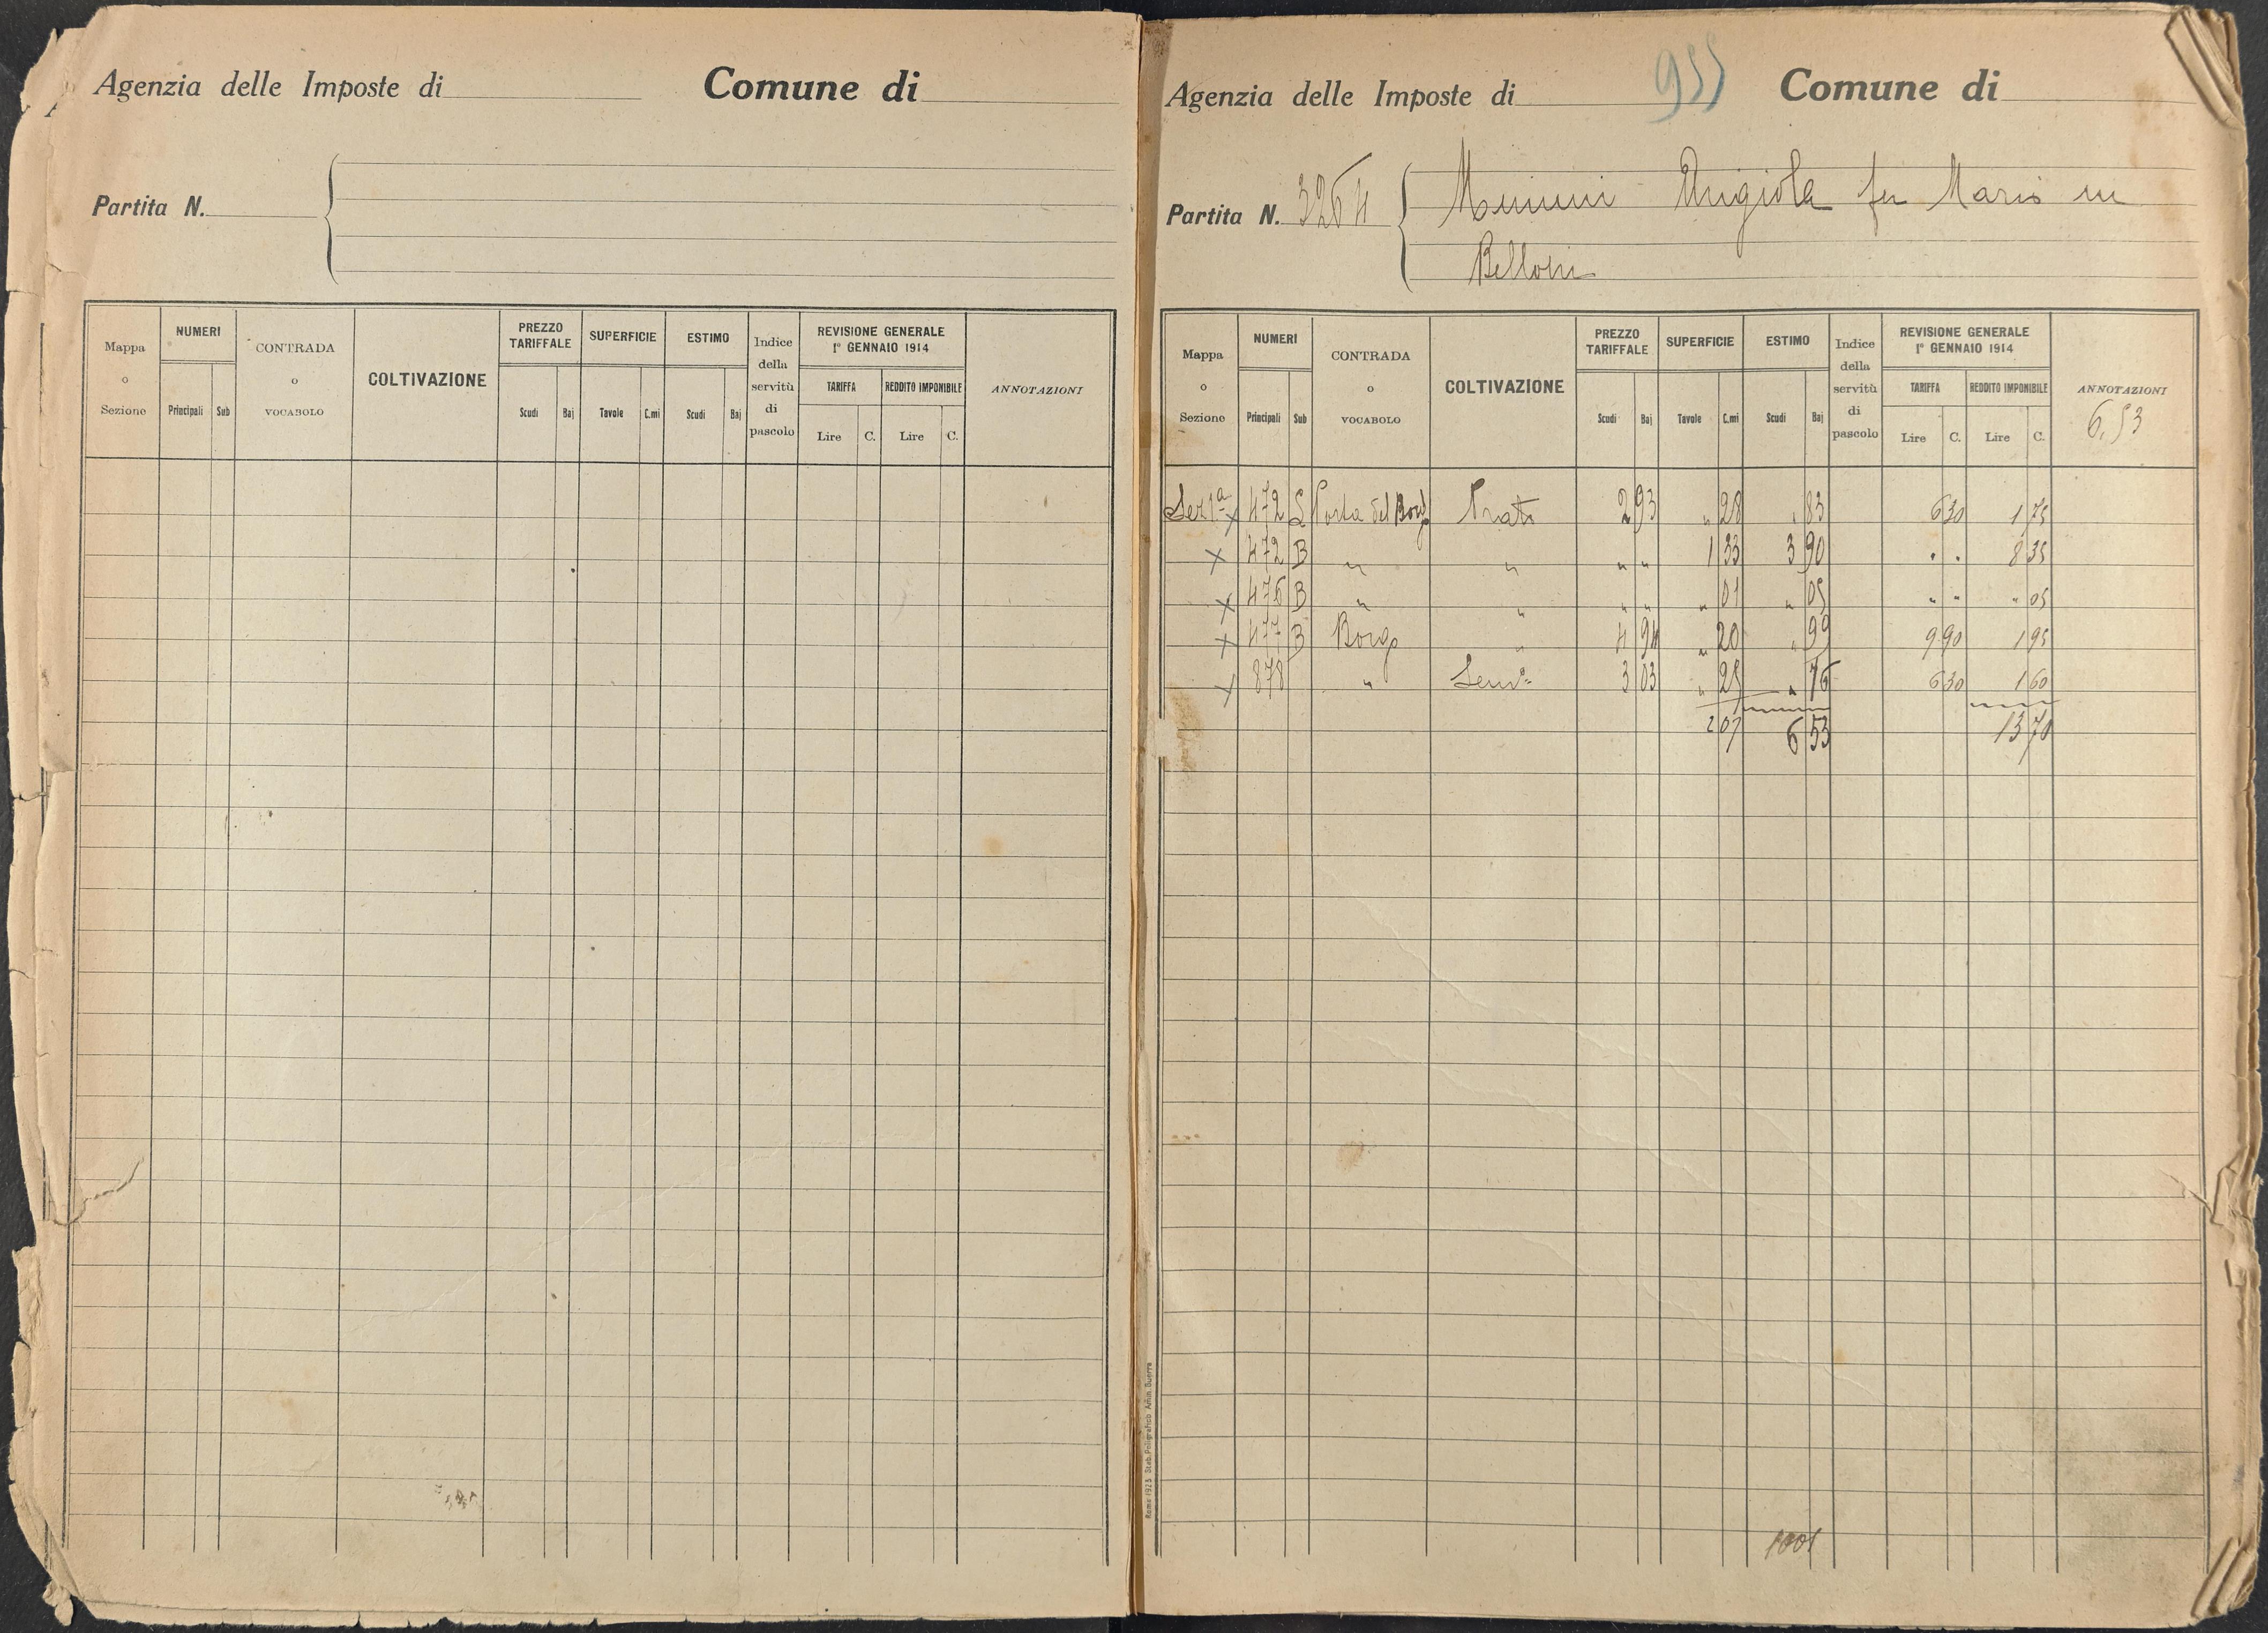 Agenzia delle Imposte di Comune di
Partita N.
Mappa o Sezione NUMERI Principali Sub CONTRADA o VOCABOLO COLTIVAZIONE PREZZO TARIFFALE Scudi Baj SUPERFICIE Tavole C.mi ESTIMO Scudi Baj Indice della servitù di pascolo REVISIONE GENERALE 1° GENNAIO 1914 TARIFFA Lire C. REDDITO IMPONIBILE Lire C. ANNOTAZIONI
955
Agenzia delle Imposte di Comune di
Partita N. 3264 Angiola fu Mario in
Belloni
Mappa o Sezione NUMERI Principali Sub CONTRADA o VOCABOLO COLTIVAZIONE PREZZO TARIFFALE Scudi Baj SUPERFICIE Tavole C.mi ESTIMO Scudi Baj Indice della servitù di pascolo REVISIONE GENERALE 1° GENNAIO 1914 TARIFFA Lire C. REDDITO IMPONIBILE Lire C. ANNOTAZIONI
6,53
Sez 1ª x 472 Porta del Borgo Prato 2 93 " 28 " 83 6 30 1 75
x 472 B " " " " 1 33 3 90 " " 8 35
x 476 B " " " " " 01 " 05 " " " 05
x 477 B Borgo " 4 94 " 20 " 99 9 90 1 95
x 878 " Semvo 3 03 " 25 " 76 6 30 1 60
2 07 6 53 13 70
Roma 1923 Stab. Poligrafico Amm. Guerra
1001